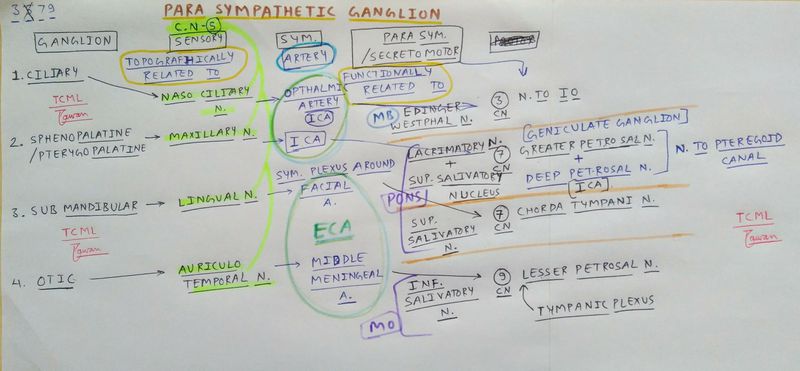 3 7 9
PARA SYMPATHETIC GANGLION
C.N-5
GANGLION SENSORY SYM. PARA SYM.
ARTERY /SECRETOMOTOR
TOPOGRAPHICALLY
RELATED TO
FUNCTIONALLY
RELATED TO
1. CILIARY NASO CILIARY N. OPTHALMI ARTERY ICA
MB EDINGER WESTPHAL N. 3 CN N. TO IO
TCML
Pawan
2. SPHENOPALATINE
/PTERYGOPALATINE
MAXILLARY N. ICA
LACRIMATORY N.
+
SUP. SALIVATORY
NUCLEUS
7
CN
[GENICULATE GANGLION]
GREATER PETROSAL N.
+
DEEP PETROSAL N.
ICA
N. TO PTEREGOID
CANAL
PONS
SYM. PLEXUS AROUND
3. SUB MANDIBULAR LINGUAL N. FACIAL
A.
SUP.
SALIVATORY
N.
7
CN
CHORDA TYMPANI N.
TCML
Pawan
TCML
Pawan
ECA
4. OTIC AURICULO
TEMPORAL N.
MIDDLE
MENINGEAL
A.
MO
INF.
SALIVATORY
N.
9
CN
LESSER PETROSAL N.
TYMPANIC PLEXUS